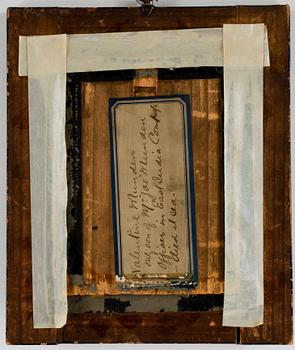 Valentine Munden
only son of Mr Joe Munden
Officer in East India Comp
died at sea.